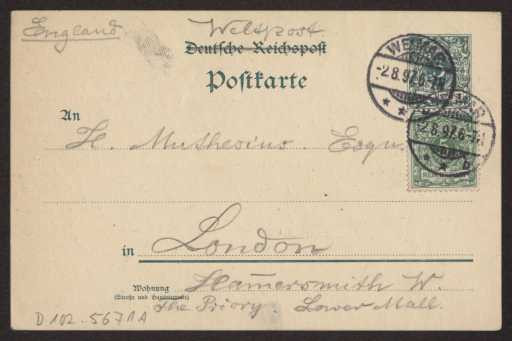 England
Weltpost
Deutsche Reichspost
Postkarte
WEIMAR
-2.8.97.6-7N
WEIMAR
-2.8.97.6-7N
b
An
H. Muthesius. Esqu.
in London
Wohnung
(Straße und Hausnummer)
Ham̄ersmith W.
The Priory Lower Mall.
D 102-5671A